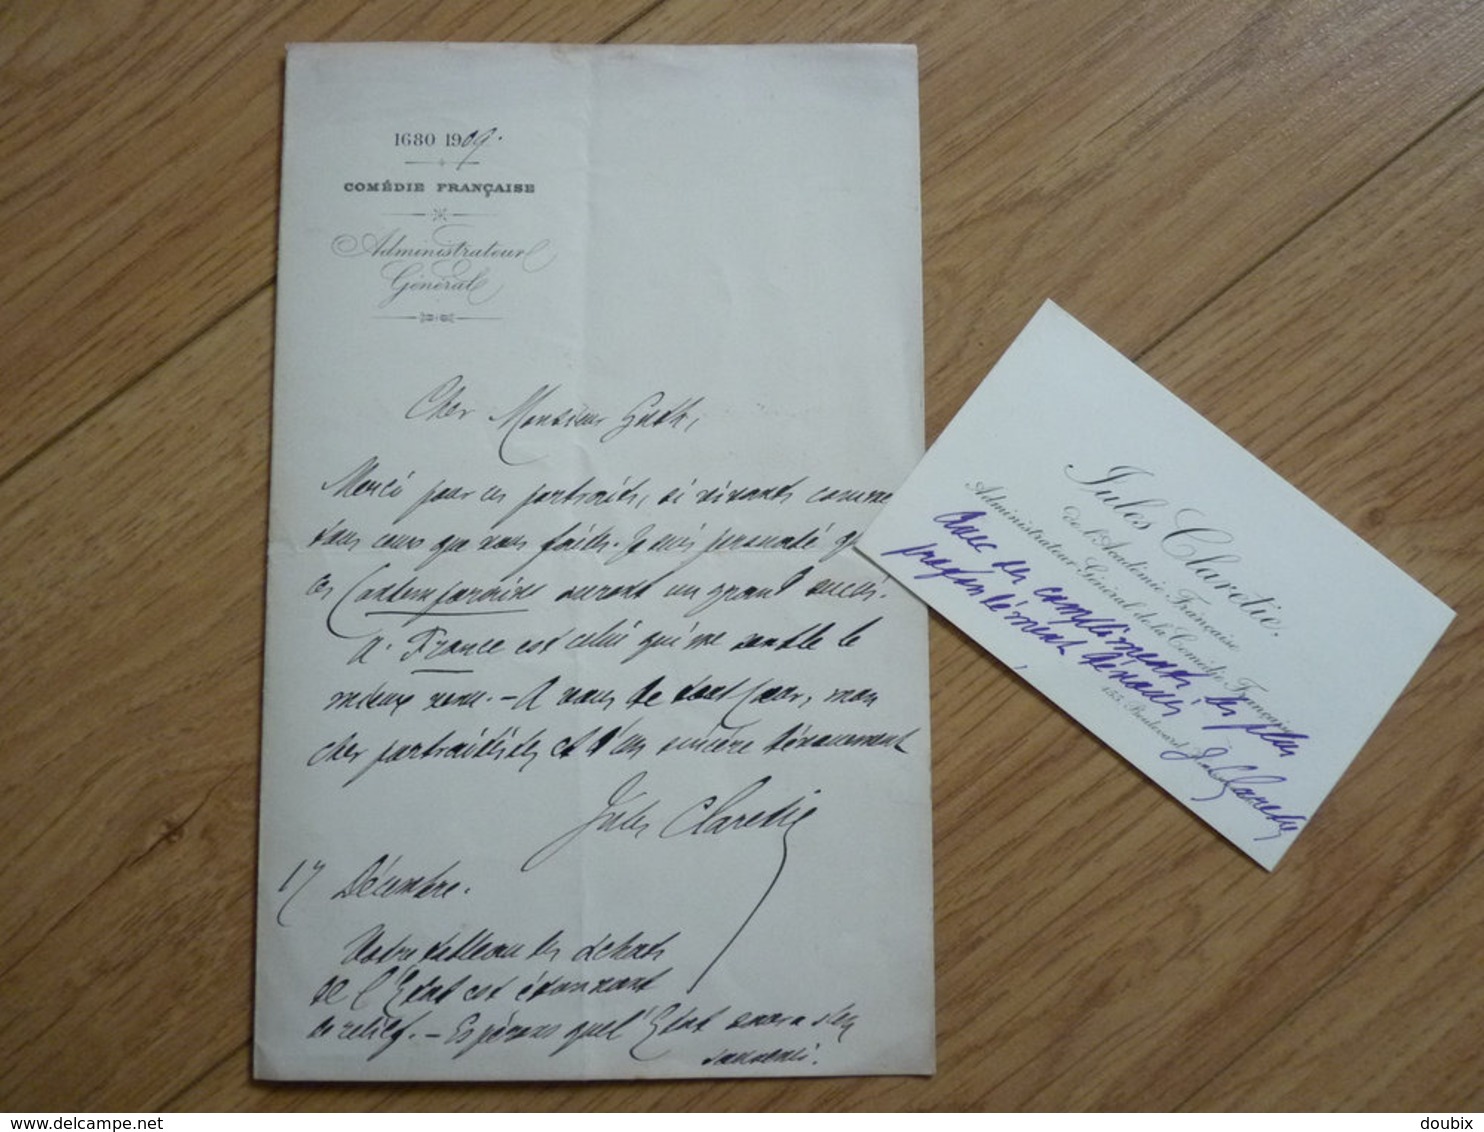 1680 1909.
COMÉDIE FRANÇAISE
Administrateur
Général
Cher Monsieur Guth,
Merci pour ces portraits, si vivants comme
tous ceux que vous faites. Je suis persuadé
ces Contemporains auront un grand succès.
A. France est celui qui me semble le
mieux venu. — A vous de tout cœur, mon
cher portraitiste et d'un sincère dévouement
Jules Claretie
17 Décembre.
Votre tableau des achats
de l'Etat est étonnant
de relief. — Espérons que l'Etat
Jules Claretie.
de l'Académie Française
Administrateur Général de la Comédie Française
155, Boulevard
Avec ses compliments les plus
profondément dévoués
J. Claretie
www.delcampe.net
doubix